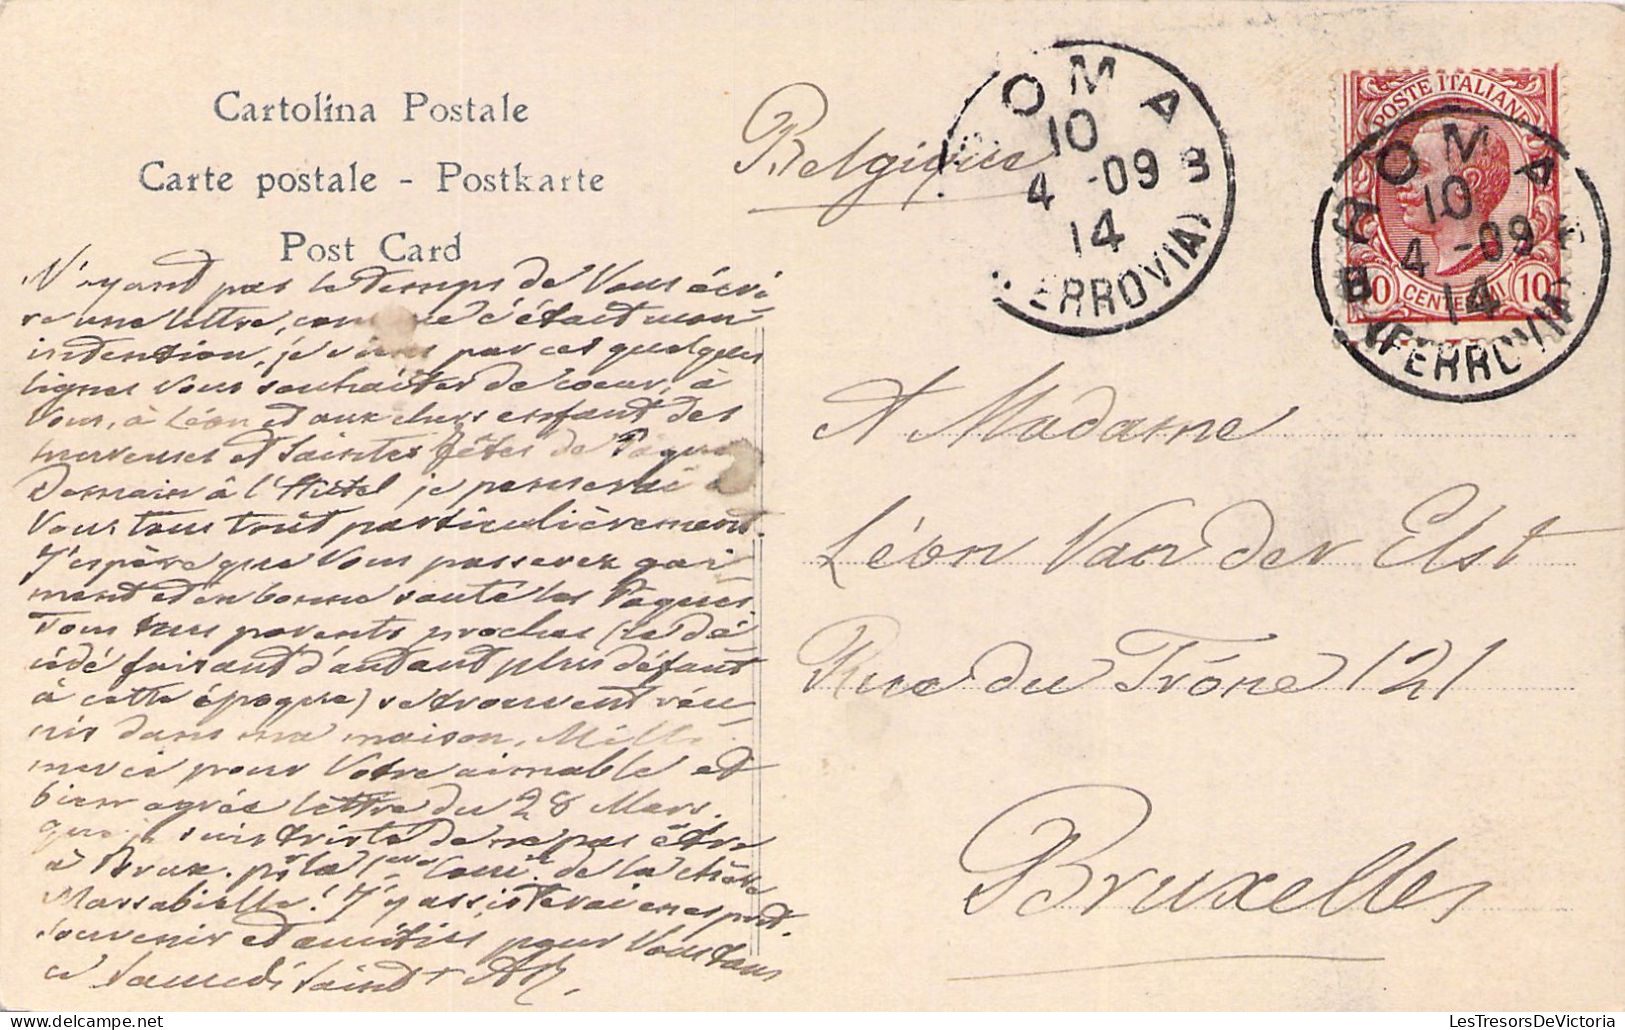 Cartolina Postale
Carte postale - Postkarte
Post Card
N'ayant pas le temps de Vous écri
re une lettre, comme c'était mon
intention, je viens par ces quelques
lignes Vous souhaiter de coeur, à
Vous, à Léon et aux chers enfant des
et Saintes fêtes de Pâques
Demain à l'Autel je penserai à
Vous tous tout particulièrement.
J'espère que Vous passerez gai
ment et en bonne santé les Pâques.
Tous parents proches (le dé
cédé faisant d'autant plus défaut
à cette époque) se trouvent réu
nis dans ma maison. Mille
merci pour Votre aimable et
bien agrée lettre du 28 Mars.
que je suis triste de ne pas être
à Brux. pr la 1ère Com. de la chère
Marsabielle! J'y assisterai en esprit.
souvenir et amitiés pour Vous tous
ce Samedi Saint
Belgique
ROMA
10
4 -09
14
(FERROVIA)
POSTE ITALIANE
10 CENTESIMI 10
ROMA
10
4 -09
14
(FERROVIA)
A Madame
Léon Van der Elst
Rue du Trône 121
Bruxelles
LesTresorsDeVictoria